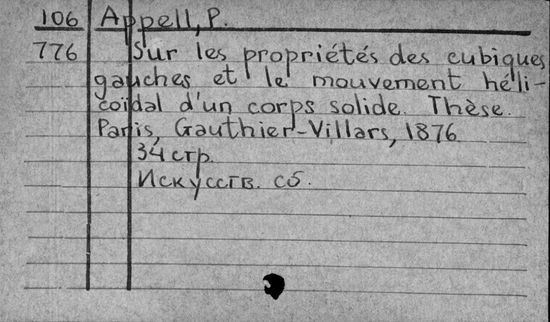 106 Appell, P.
776 Sur les propriétés des cubiques
gauches et le mouvement héli-
coïdal d'un corps solide. Thèse.
Paris, Gauthier-Villars, 1876
34 стр.
Искусств. сб.